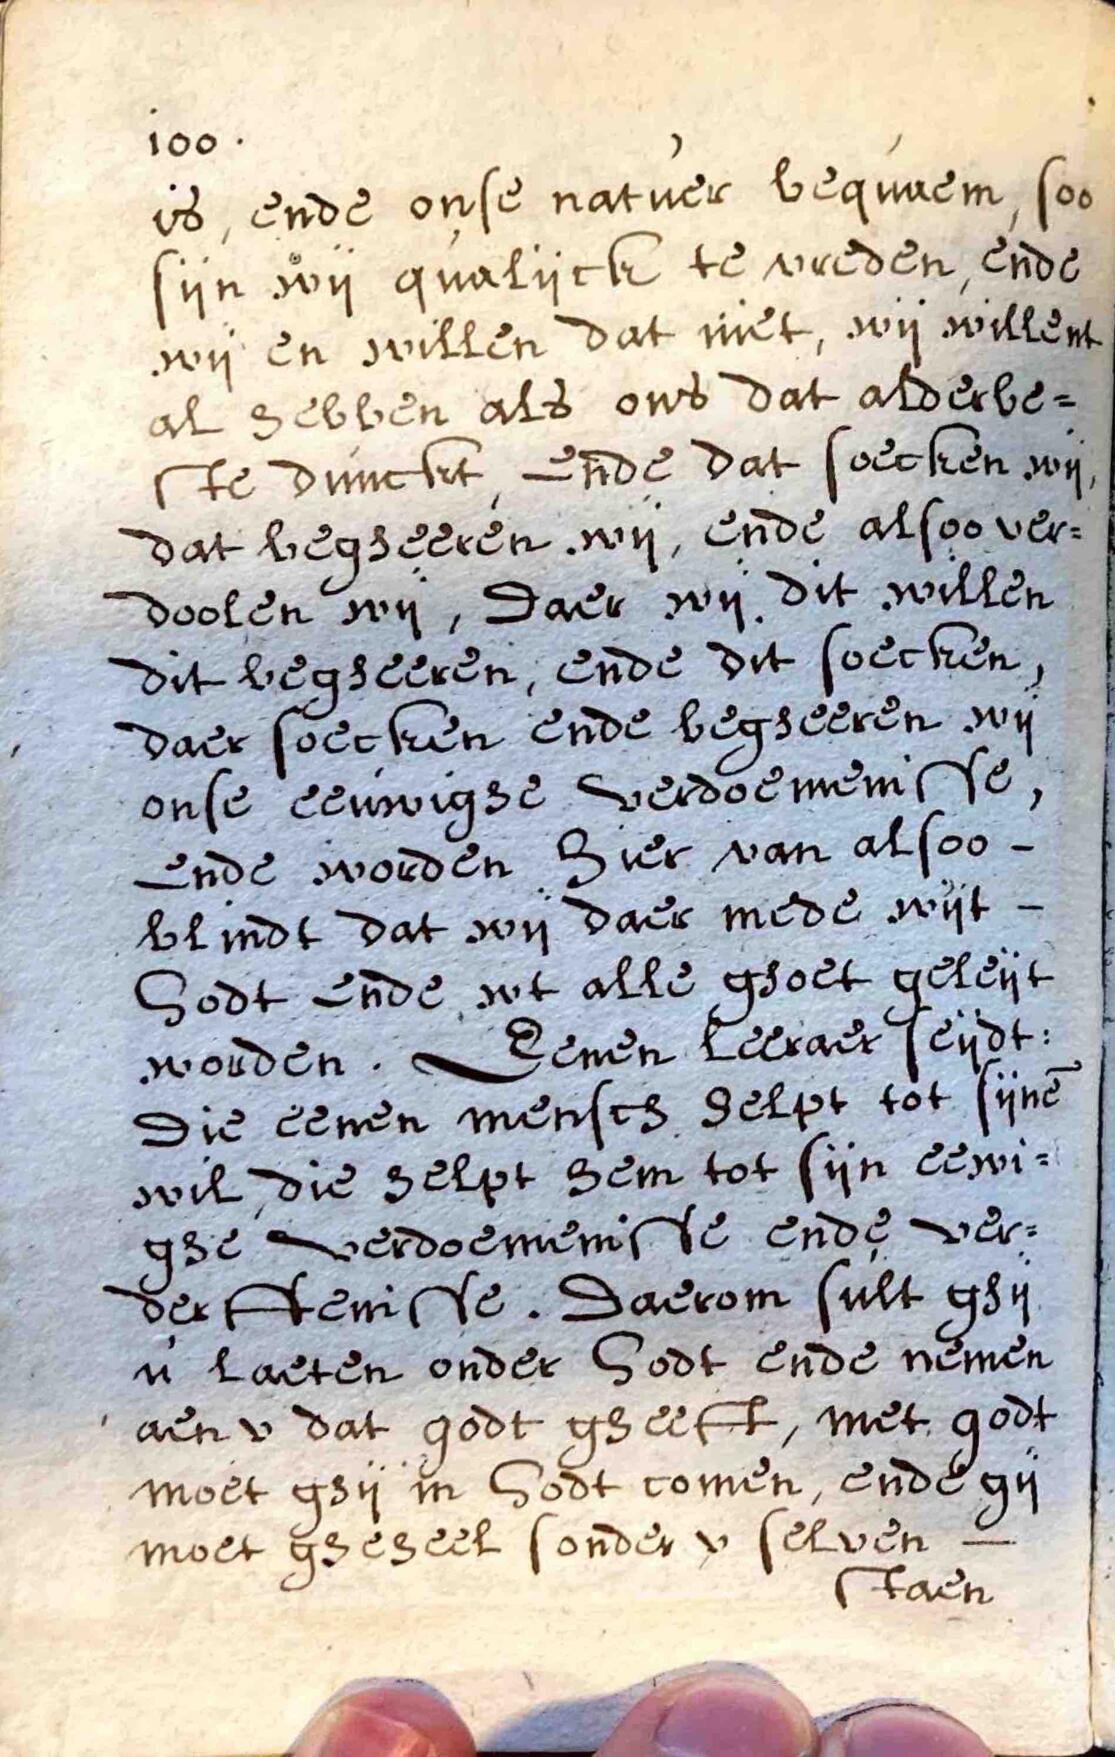 100.
is, ende onse natuer bequaem, soo
sijn wij qualijck te vreden, ende
wij en willen dat niet, wij willent
al hebben als ons dat alderbe=
ste dunckt, ende dat soecken wij,
dat begheeren wij, ende alsoo ver=
doolen wij, Daer wij dit willen
dit begheeren, ende dit soecken,
daer soecken ende begheeren wij
onse eeuwighe verdoemenisse,
ende worden hier van alsoo –
blindt dat wij daer mede wijt –
Godt ende wt alle ghoet geleijt
worden. Eenen leeraer seijdt:
Die eenen mensch helpt tot sijnē
wil, die helpt hem tot sijn eewi=
ghe verdoemenisse ende ver=
derffenisse. Daerom sult ghij
u laeten onder Godt ende nemen
aen v dat godt gheeft, met godt
moet ghij in Godt comen, ende gij
moet gheheel sonder v selven —
staen